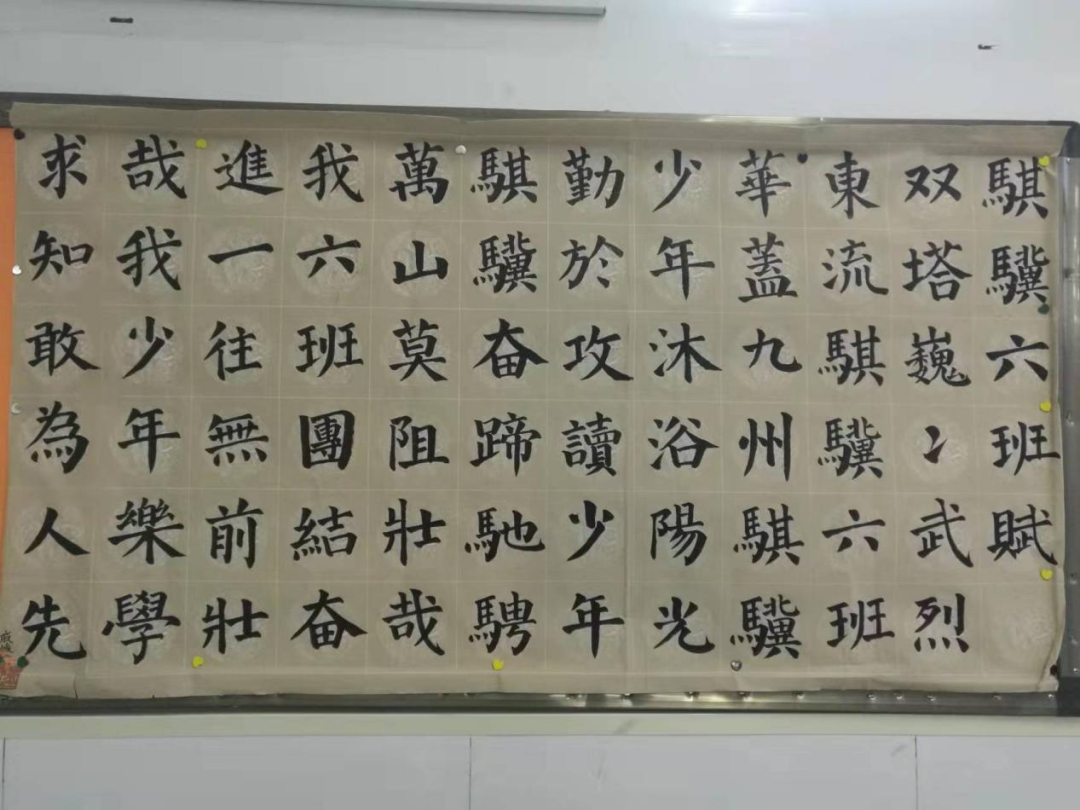 騏驥六班賦
双塔巍〻武烈
東流騏驥六班
華蓋九州騏驥
少年沐浴陽光
勤於攻讀少年
騏驥奋蹄馳騁
萬山莫阻壯哉
我六班團結奋
進一往無前壯
哉我少年樂學
求知敢為人先